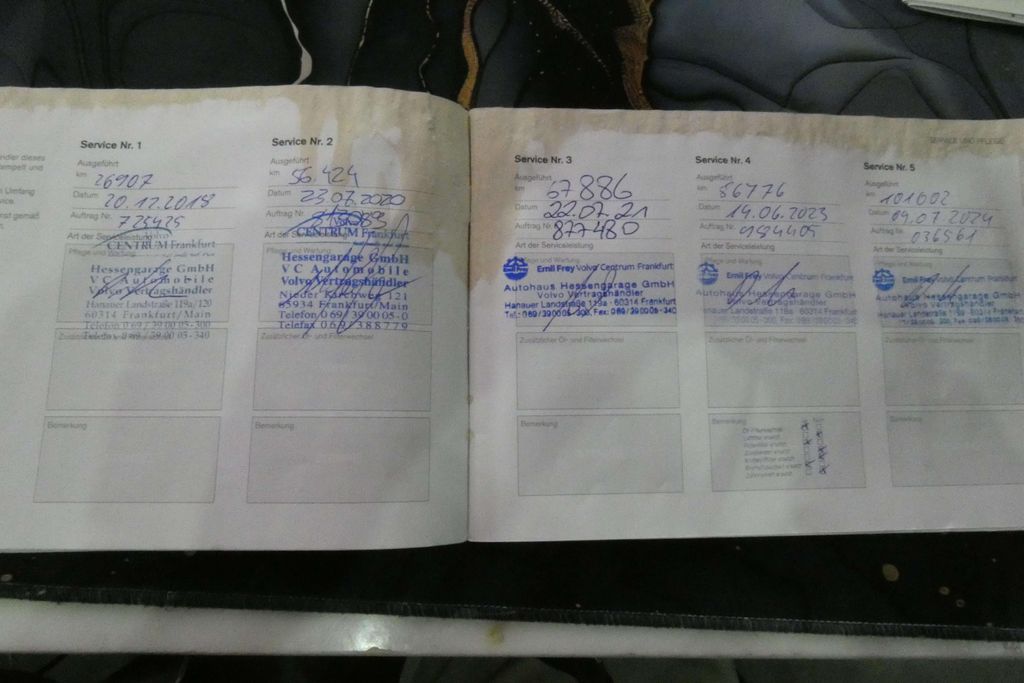 Service Nr. 1
Ausgeführt
km 26907
Datum 20.12.2018
Auftrag Nr. 725425
Art der Serviceleistung
CENTRUM Frankfurt
Pflege und Wartung
Hessengarage GmbH
VC Automobile
Volvo Vertragshändler
Hanauer Landstraße 119a/120
60314 Frankfurt/Main
Telefon 069/39 00 05-300
Telefax 069/39 00 05-340
Zusätzlicher Öl- und Filterwechsel
Bemerkung
Service Nr. 2
Ausgeführt
km 56.424
Datum 23.07.2020
Auftrag Nr.
Art der Serviceleistung
CENTRUM Frankfurt
Pflege und Wartung
Hessengarage GmbH
VC Automobile
Volvo Vertragshändler
Nieder Kirchweg 121
65934 Frankfurt/Main
Telefon 069/39 00 05-0
Telefax 069/388779
Zusätzlicher Öl- und Filterwechsel
Bemerkung
SERVICE UND PFLEGE
Service Nr. 3
Ausgeführt
km 67886
Datum 22.07.21
Auftrag Nr. 877480
Art der Serviceleistung
Pflege und Wartung
Emil Frey Volvo Centrum Frankfurt
Autohaus Hessengarage GmbH
Volvo Vertragshändler
Hanauer Landstraße 119a · 60314 Frankfurt
Tel.: 069/39 00 05-300, Fax: 069/39 00 05-340
Zusätzlicher Öl- und Filterwechsel
Bemerkung
Service Nr. 4
Ausgeführt
km 86776
Datum 14.06.2023
Auftrag Nr. 984405
Art der Serviceleistung
Pflege und Wartung
Emil Frey Volvo Centrum Frankfurt
Autohaus Hessengarage GmbH
Volvo Vertragshändler
Hanauer Landstraße 119a · 60314 Frankfurt
Zusätzlicher Öl- und Filterwechsel
Bemerkung
Service Nr. 5
Ausgeführt
km 101002
Datum 09.07.2024
Auftrag Nr. 036561
Art der Serviceleistung
Pflege und Wartung
Emil Frey Volvo Centrum Frankfurt
Autohaus Hessengarage GmbH
Volvo Vertragshändler
Hanauer Landstraße 119a · 60314 Frankfurt
Zusätzlicher Öl- und Filterwechsel
Bemerkung